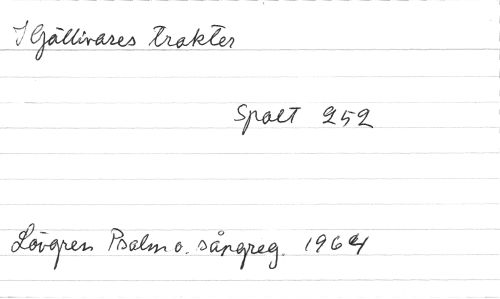 I Gällivares trakter
Spalt 252
Lövgren Psalm o. sångreg. 1964